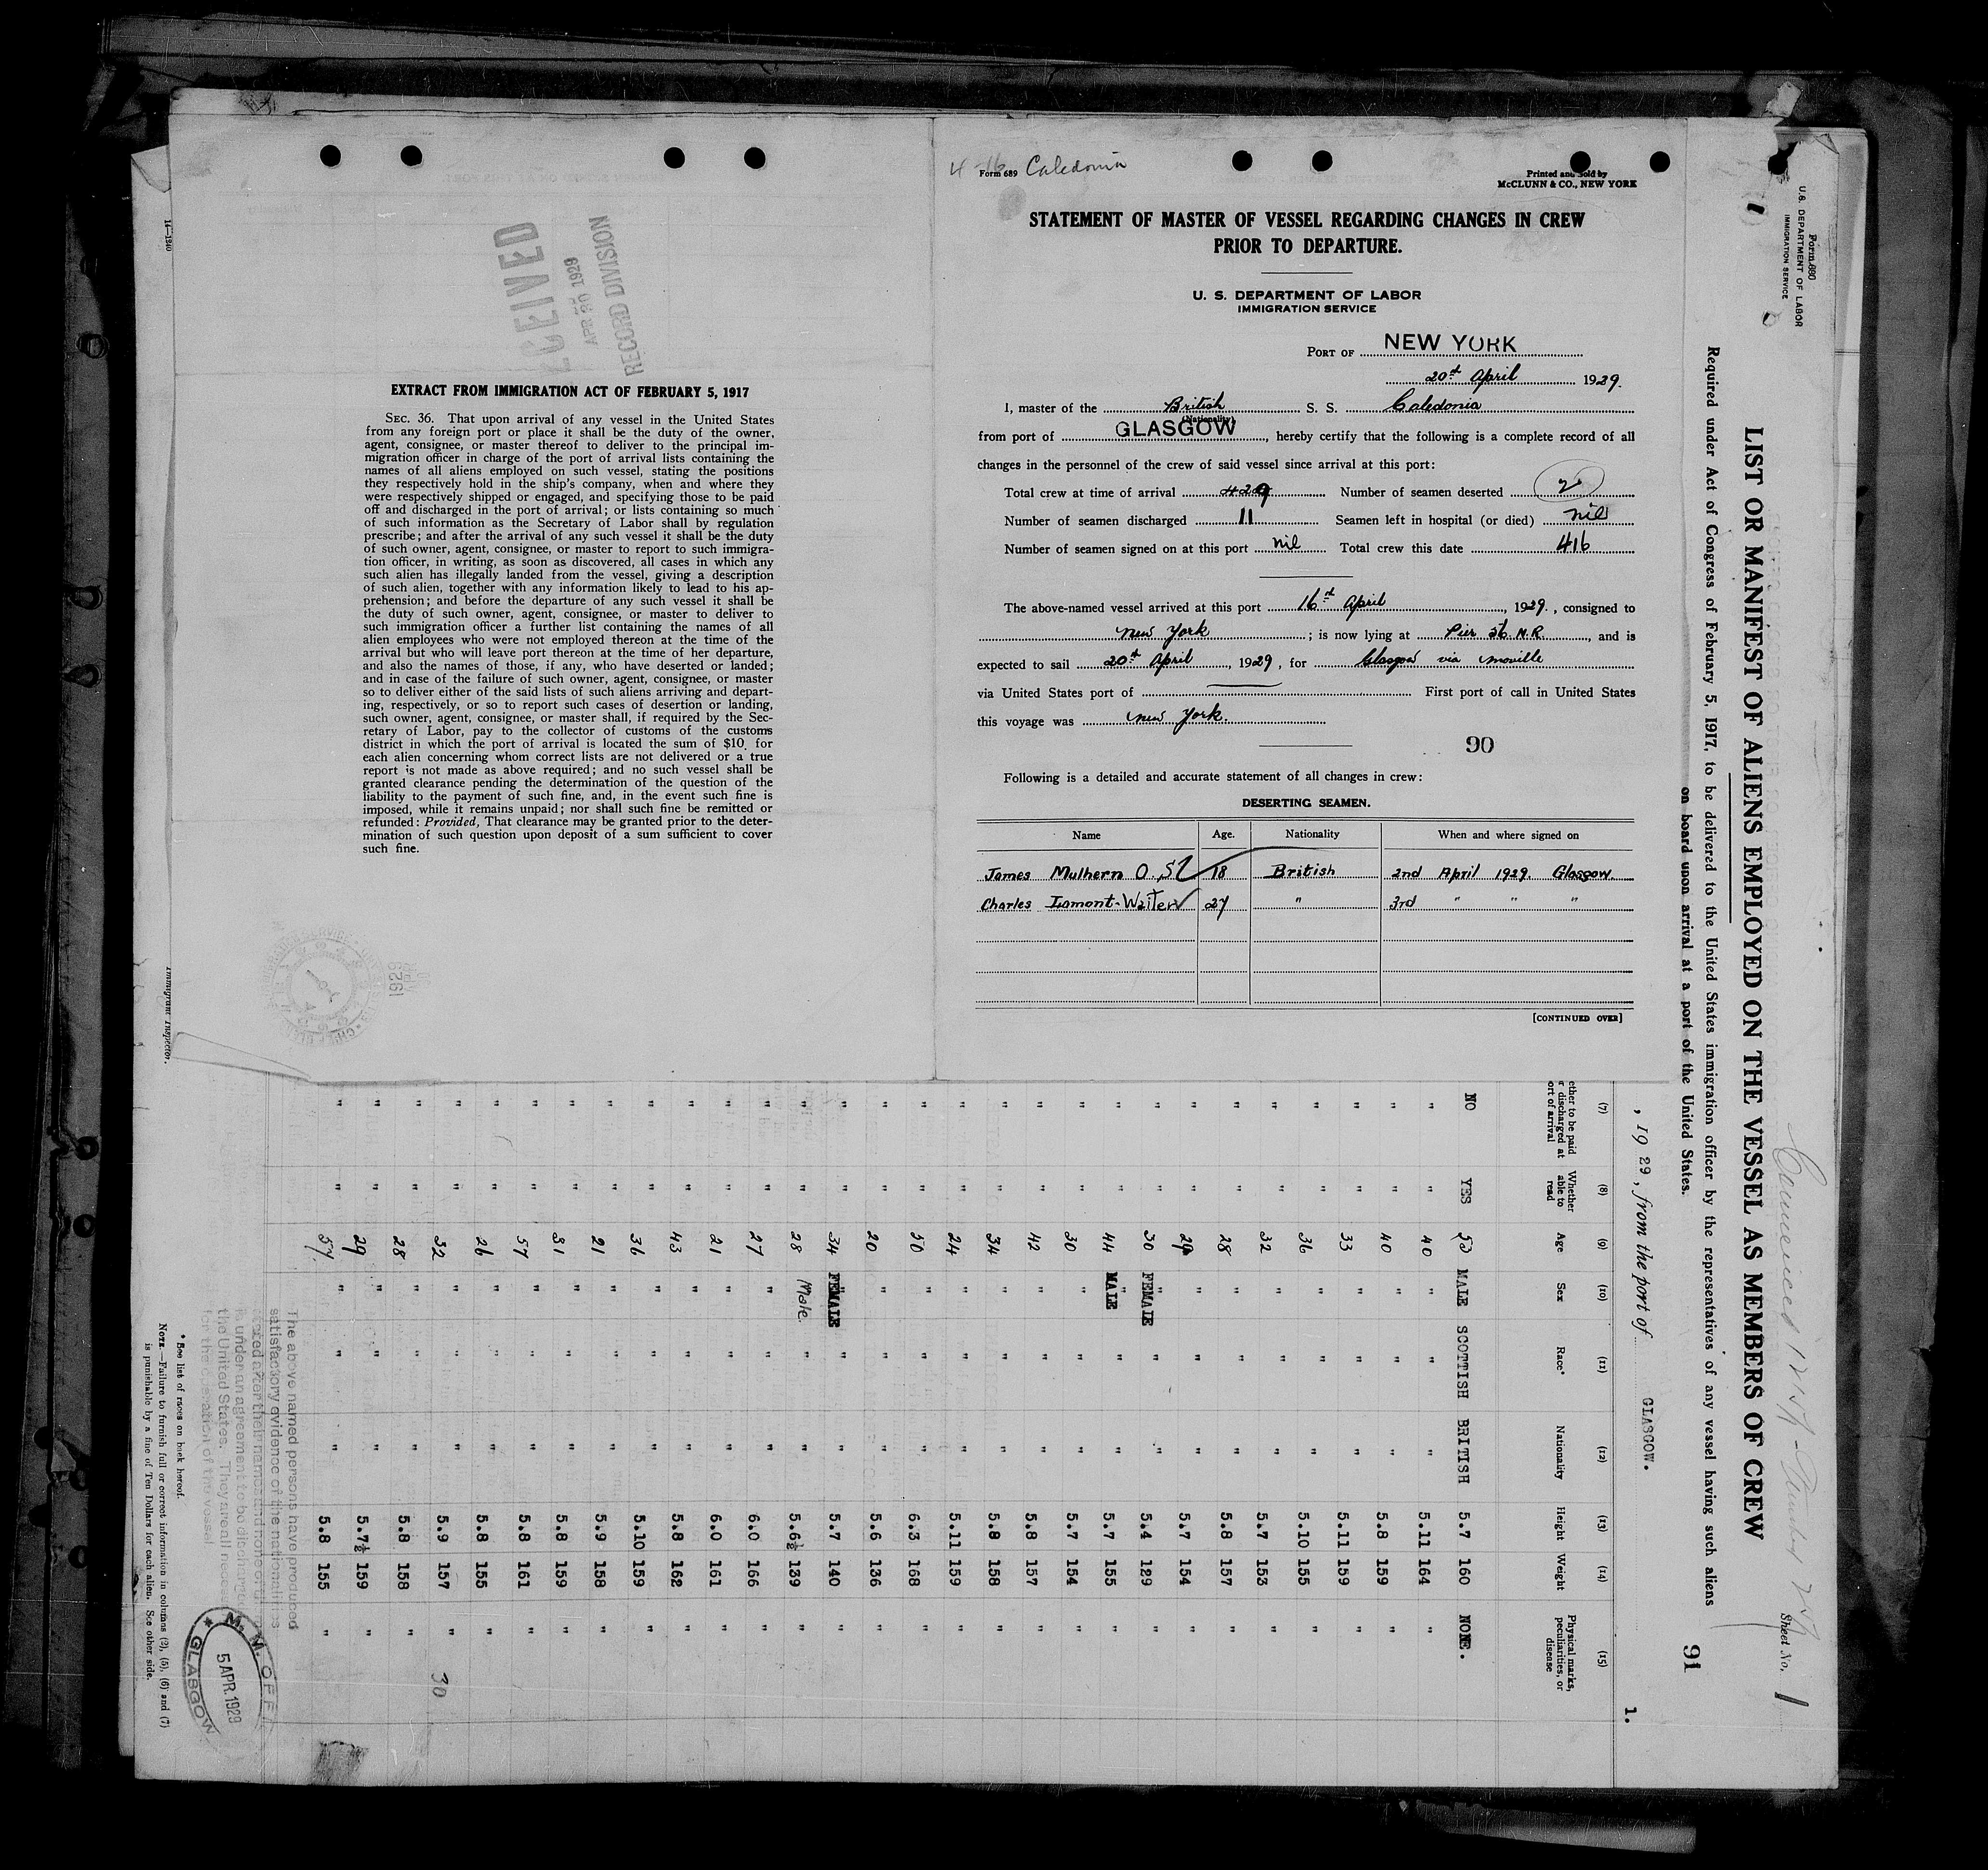 EGEIVED
APR 20 1929
RECORD DIVISION
EXTRACT FROM IMMIGRATION ACT OF FEBRUARY 5, 1917
SEC. 36. That upon arrival of any vessel in the United States
from any foreign port or place it shall be the duty of the owner,
agent, consignee, or master thereof to deliver to the principal im-
migration officer in charge of the port of arrival lists containing the
names of all aliens employed on such vessel, stating the positions
they respectively hold in the ship's company, when and where they
were respectively shipped or engaged, and specifying those to be paid
off and discharged in the port of arrival; or lists containing so much
of such information as the Secretary of Labor shall by regulation
prescribe; and after the arrival of any such vessel it shall be the duty
of such owner, agent, consignee, or master to report to such immigra-
tion officer, in writing, as soon as discovered, all cases in which any
such alien has illegally landed from the vessel, giving a description
of such alien, together with any information likely to lead to his ap-
prehension; and before the departure of any such vessel it shall be
the duty of such owner, agent, consignee, or master to deliver to
such immigration officer a further list containing the names of all
alien employees who were not employed thereon at the time of the
arrival but who will leave port thereon at the time of her departure,
and also the names of those, if any, who have deserted or landed;
and in case of the failure of such owner, agent, consignee, or master
so to deliver either of the said lists of such aliens arriving and depart-
ing, respectively, or so to report such cases of desertion or landing,
such owner, agent, consignee, or master shall, if required by the Sec-
retary of Labor, pay to the collector of customs of the customs
district in which the port of arrival is located the sum of $10 for
each alien concerning whom correct lists are not delivered or a true
report is not made as above required; and no such vessel shall be
granted clearance pending the determination of the question of the
liability to the payment of such fine, and, in the event such fine is
imposed, while it remains unpaid; nor shall such fine be remitted or
refunded: Provided, That clearance may be granted prior to the deter-
mination of such question upon deposit of a sum sufficient to cover
such fine.
14—1240
Immigrant Inspector.
4-16 Form 689 Caledonia
Printed and Sold by
McCLUNN & CO., NEW YORK
STATEMENT OF MASTER OF VESSEL REGARDING CHANGES IN CREW
PRIOR TO DEPARTURE.
U. S. DEPARTMENT OF LABOR
IMMIGRATION SERVICE
PORT OF NEW YORK
20th April 1929.
I, master of the British S. S. Caledonia
(Nationality)
from port of GLASGOW, hereby certify that the following is a complete record of all
changes in the personnel of the crew of said vessel since arrival at this port:
Total crew at time of arrival 429 Number of seamen deserted 2
Number of seamen discharged 11 Seamen left in hospital (or died) nil
Number of seamen signed on at this port nil Total crew this date 416
The above-named vessel arrived at this port 16th April, 1929., consigned to
New York; is now lying at Pier 56 N.R., and is
expected to sail 20th April, 1929, for Glasgow via Moville
via United States port of First port of call in United States
this voyage was New York.
90
Following is a detailed and accurate statement of all changes in crew:
DESERTING SEAMEN.
Name Age. Nationality When and where signed on
James Mulhern O.S. 18 British 2nd April 1929. Glasgow.
Charles Lamont-Waiter 27 " 3rd " " "
[CONTINUED OVER]
Form 680
U.S. DEPARTMENT OF LABOR
IMMIGRATION SERVICE
Sheet No. 1
LIST OR MANIFEST OF ALIENS EMPLOYED ON THE VESSEL AS MEMBERS OF CREW
Required under Act of Congress of February 5, 1917, to be delivered to the United States immigration officer by the representatives of any vessel having such aliens
on board upon arrival at a port of the United States.
91
, 1929, from the port of GLASGOW.
1.
(7) (8) (9) (10) (11) (12) (13) (14) (15)
ether to be paid r discharged at ort of arrival Whether able to read Age Sex Race* Nationality Height Weight Physical marks, peculiarities, or disease
NO YES 53 MALE SCOTTISH BRITISH 5.7 160 NONE.
" " 40 " " " 5.11 164 "
" " 40 " " " 5.8 159 "
" " 33 " " " 5.11 159 "
" " 36 " " " 5.10 155 "
" " 32 " " " 5.7 153 "
" " 28 " " " 5.8 157 "
" " 29 " " " 5.7 154 "
" " 30 FEMALE " " 5.4 129 "
" " 44 MALE " " 5.7 155 "
" " 30 " " " 5.7 154 "
" " 42 " " " 5.8 157 "
" " 34 " " " 5.8 158 "
" " 24 " " " 5.11 159 "
" " 50 " " " 6.3 168 "
" " 20 " " " 5.6 136 "
" " 34 FEMALE " " 5.7 140 "
" " 28 Male. " " 5.6½ 139 "
" " 27 " " " 6.0 166 "
" " 21 " " " 6.0 161 "
" " 43 " " " 5.8 162 "
" " 36 " " " 5.10 159 "
" " 21 " " " 5.9 158 "
" " 31 " " " 5.8 159 "
" " 57 " " " 5.8 161 "
" " 26 " " " 5.8 155 "
" " 32 " " " 5.9 157 "
" " 28 " " " 5.8 158 "
" " 29 " " " 5.7½ 159 "
" " 57 " " " 5.8 155 "
30
The above named persons have produced
satisfactory evidence of the nationalities
is under an agreement to be discharged
the United States. They are all necess
for the operation of the vessel
* See list of races on back hereof.
NOTE.—Failure to furnish full or correct information in columns (2), (5), (6) and (7)
is punishable by a fine of Ten Dollars for each alien. See other side.
M. M. OFFI
5 APR. 1929
GLASGOW